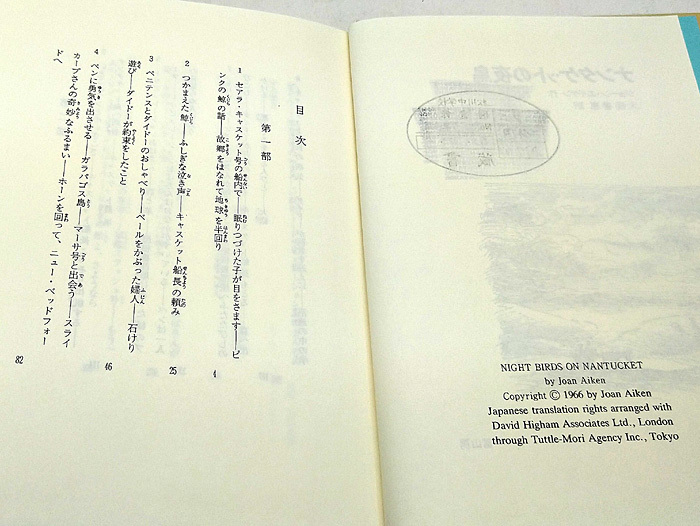 目次
第一部
1 セアラ・キャスケット号の船内で――眠りつづけた子が目をさます――ピ
ンクの鯨の話――故郷をはなれて地球を半回り
4
2 つかまえた鯨――ふしぎな泣き声――キャスケット船長の頼み
25
3 ペニテンスとダイドーのおしゃべり――ベールをかぶった婦人――石けり
遊び――ダイドーが約束をしたこと
46
4 ペンに勇気を出させる――ガラパゴス島――マーサ号と出会う――スライ
カープさんの奇妙なふるまい――ホーンを回って、ニュー・ベッドフォー
ドへ
82
NIGHT BIRDS ON NANTUCKET
by Joan Aiken
Copyright © 1966 by Joan Aiken
Japanese translation rights arranged with
David Higham Associates Ltd., London
through Tuttle-Mori Agency Inc., Tokyo
蔵書